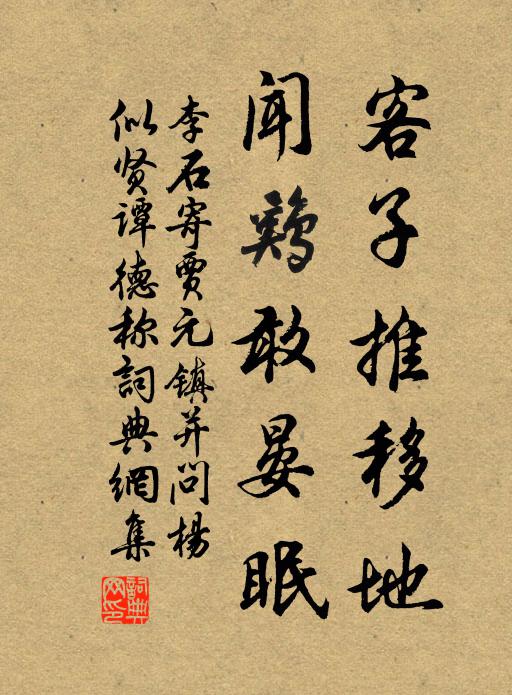 客子推移地
闻鸡敢晏眠
李石寄贾元镇并问杨
似贤谭德称詞典網集
詞典网印